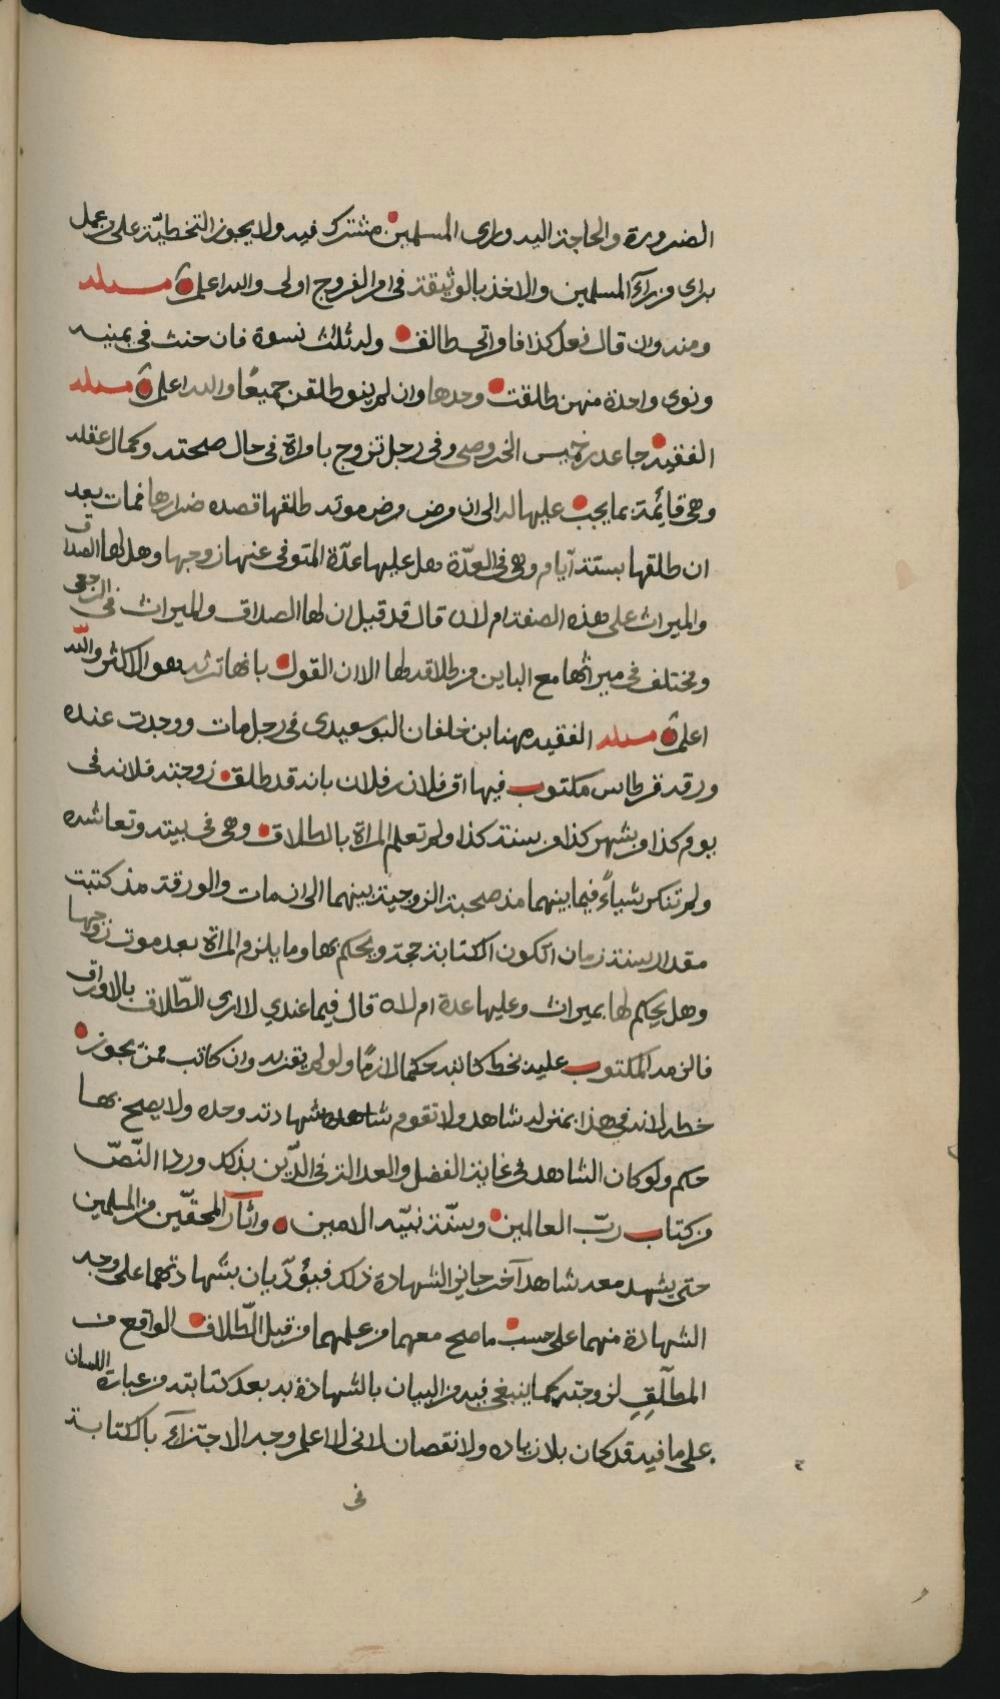 الضرورة والحاجة اليه وراى المسلمين مشترك فيه ولا يجوز التخطية على من عمل
براى من رآء المسلمين والاخذ بالوثيقة فى امر الفروج اولى والله اعلم مسئله
ومنه وان قال فعل كذا فامراتى طالق وله ثلث نسوة فان حنث فى يمينه
ونوى واحدة منهن طلقت وحدها وان لم ينو طلقن جميعًا والله اعلم مسئله
الفقيه جاعد بن خميس الخروصى وفى رجل تزوج بامراة فى حال صحته وكمال عقله
وهى قائمة بما يجب عليها له الى ان مرض مرض موته طلقها قصده ضرارها فمات بعد
ان طلقها بستة آيام وهى فى العدّة هل عليها عدّة المتوفى عنها زوجها وهل لها الصداق
والميراث على هذه الصفة ام لا قال قد قيل ان لها الصداق والميراث فى الرجعى
ومختلف فى ميراثها مع الباين من طلاقه لها الا ان القول بانها ترثه هو الاكثر والله
اعلم مسئله الفقيه مهنا بن خلفان البوسعيدى فى رجل مات ووجدت عنده
ورقة قرطاس مكتوب فيها اقر فلان بن فلان بانه قد طلق زوجته فلانه فى
يوم كذا من شهر كذا من سنة كذا ولم تعلم المراة بالطلاق وهى فى بيته وتعاشره
ولم تنكر شياءً فيما بينهما مذ صحبة الزوجية بينهما الى ان مات والورقة مذ كتبت
مقدار سنة زمان اتكون الكتابة حجة ويحكم بها وما يلزم المراة بعد موت زوجها
وهل يحكم لها بميراث وعليها عدة ام لا قال فيما عندي لا ارى الطّلاق بالاوراق
فالزمه المكتوب عليه بخط كاتبه حكما لازمًا ولو لم يقر به وان كاتب ممن يجوز
خطه لانه فى هذا بمنزله شاهد ولا تقوم شاهد شهادته وحده ولا يصح بها
حكم ولو كان الشاهد فى غاية الفضل والعدالة فى الدّين بذلك ورد النّصّ
من كتاب ربّ العالمين وسنّة نبيّه الامين وآثار المحقّين من المسلمين
حتى يشهد معه شاهد آخر جايز الشهادة ذلك فيؤدّيان بشهادتهما على وجه
الشهادة منهما على حسب ما صح معهما من علمهما من قبل الطّلاق الواقع من
المطلّقِ لزوجته كما ينبغى فيه من البيان بالشهادة به بعد كتابته من عبارة اللسان
على ما فيه قد كان بلا زياده ولا نقصان لانى لا اعلم وجه الاجتزآء بالكتابة
فى